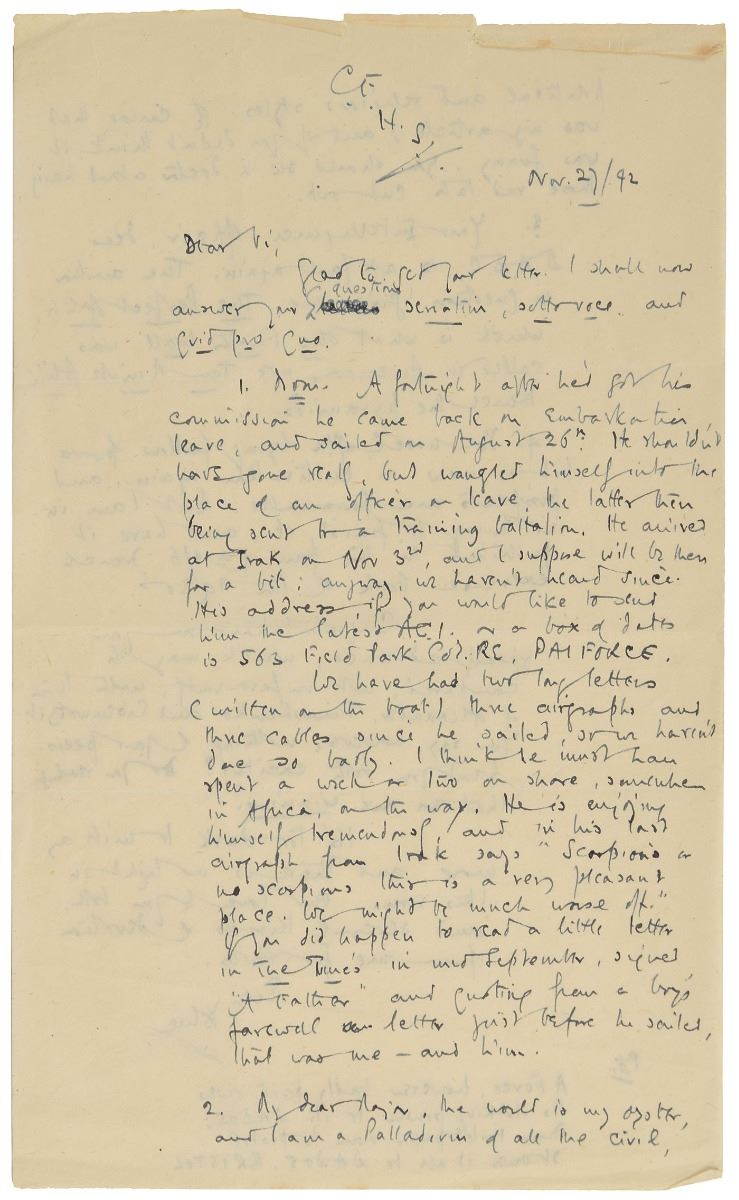 C.F.
H.
S.
Nov. 27/42
Dear Vi,
Glad to get your letter. I shall now
questions
answer your seriatim, sotto voce, and
Quid pro Quo.
1. Mom. A fortnight after he'd got his
commission he came back on Embarkation
leave, and sailed on August 26th. He shouldn't
have gone really, but wangled himself into the
place of an officer on leave, the latter then
being sent to a Training battalion. He arrived
at Irak on Nov 3rd, and I suppose will be there
for a bit; anyway, we haven't heard since.
His address, if you would like to send
him the latest A.C.I. or a box of dates
is 563 Field Park Coy. RE, PAIFORCE.
We have had two long letters
(written on the boat) three airgraphs and
three cables since he sailed, so we haven't
done so badly. I think he must have
spent a week or two on shore, somewhere
in Africa, on the way. He is enjoying
himself tremendously, and in his last
airgraph from Irak says "Scorpions or
no scorpions this is a very pleasant
place. We might be much worse off."
If you did happen to read a little letter
in The Times in mid September, signed
"A Father" and quoting from a boy's
farewell letter just before he sailed,
that was me — and him.
2. My dear Major, the world is my oyster,
and I am a Palladium of all the civil,